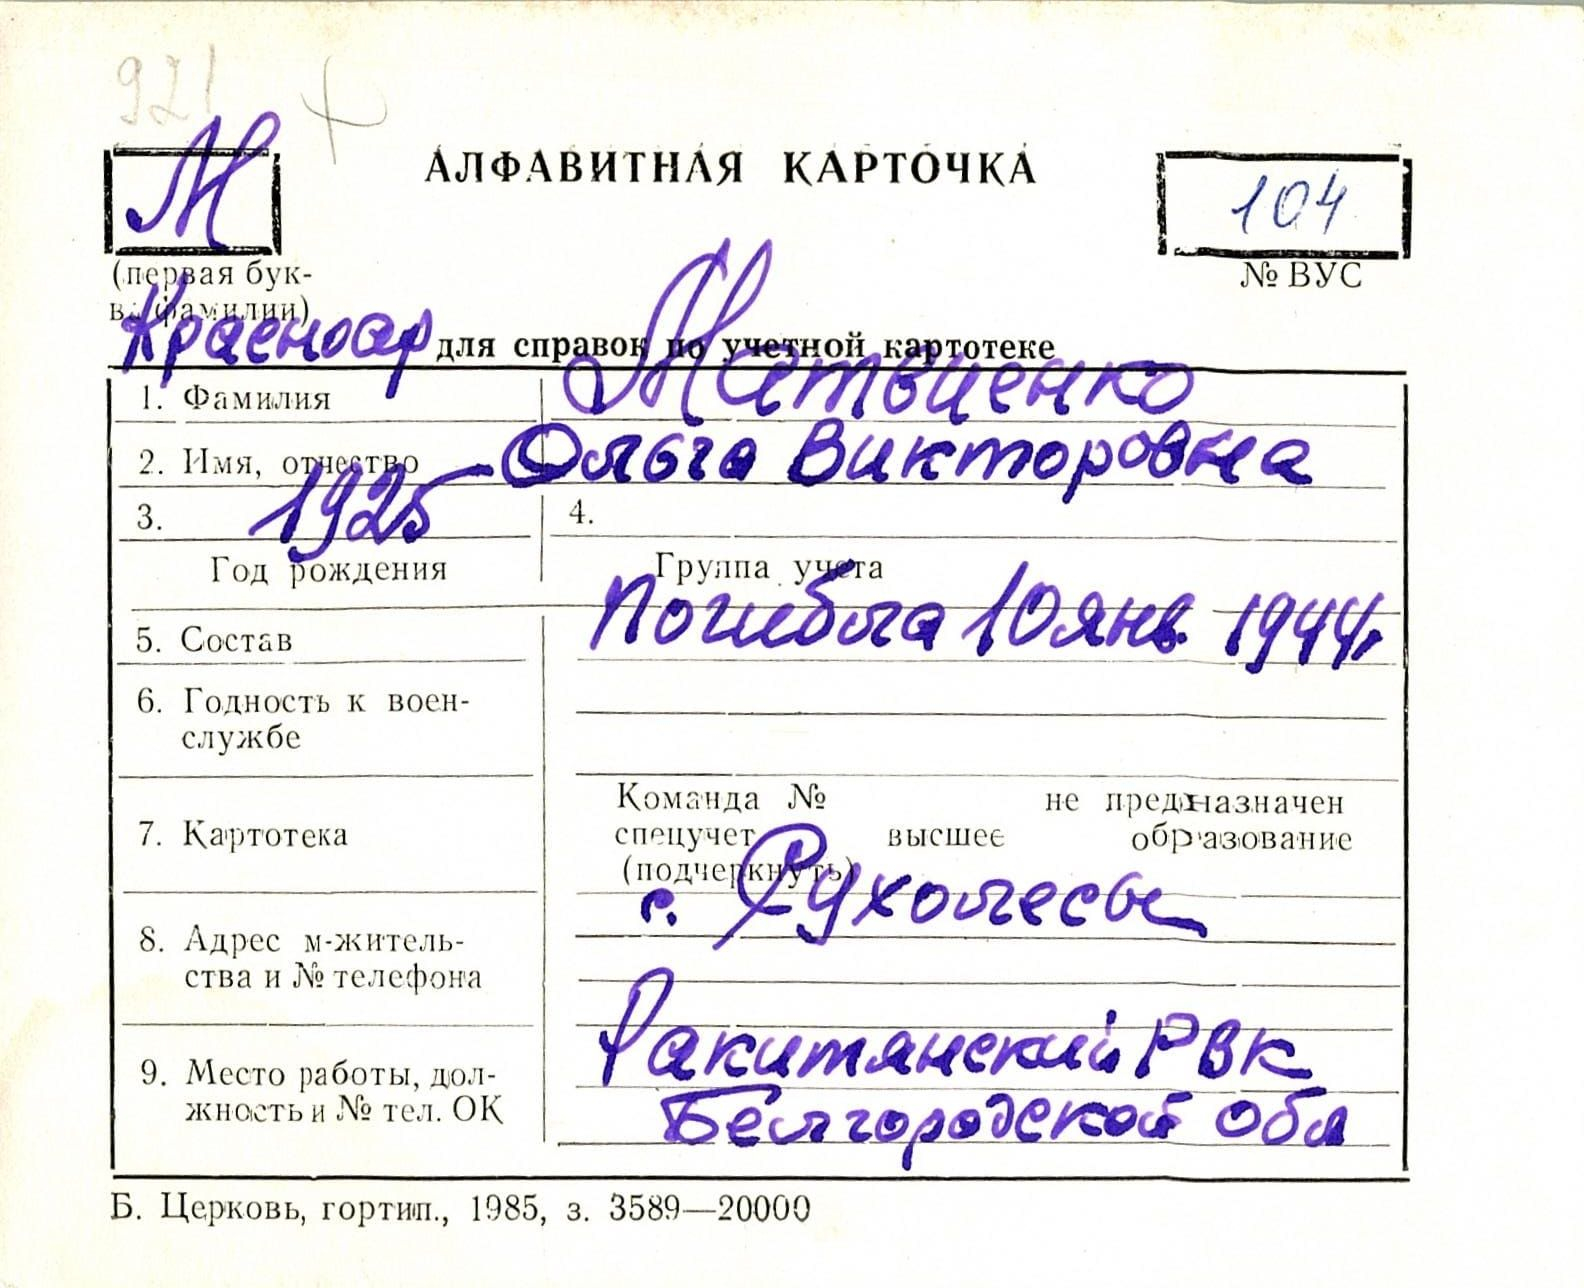 921
М
АЛФАВИТНАЯ КАРТОЧКА
104
(первая бук-
ва фамилии)
№ ВУС
Красноар для справок по учетной картотеке
1. Фамилия Матвиенко
2. Имя, отчество Ольга Викторовна
3. 1925 4.
Год рождения Группа учета
5. Состав Погибла 10 янв. 1944г.
6. Годность к воен-
службе
7. Картотека
Команда № не предназначен
спецучет высшее образование
(подчеркнуть)
8. Адрес м-житель-
ства и № телефона
с.
9. Место работы, дол-
жность и № тел. ОК
Ракитянский РВК
Белгородской обл
Б. Церковь, гортип., 1985, з. 3589—20000